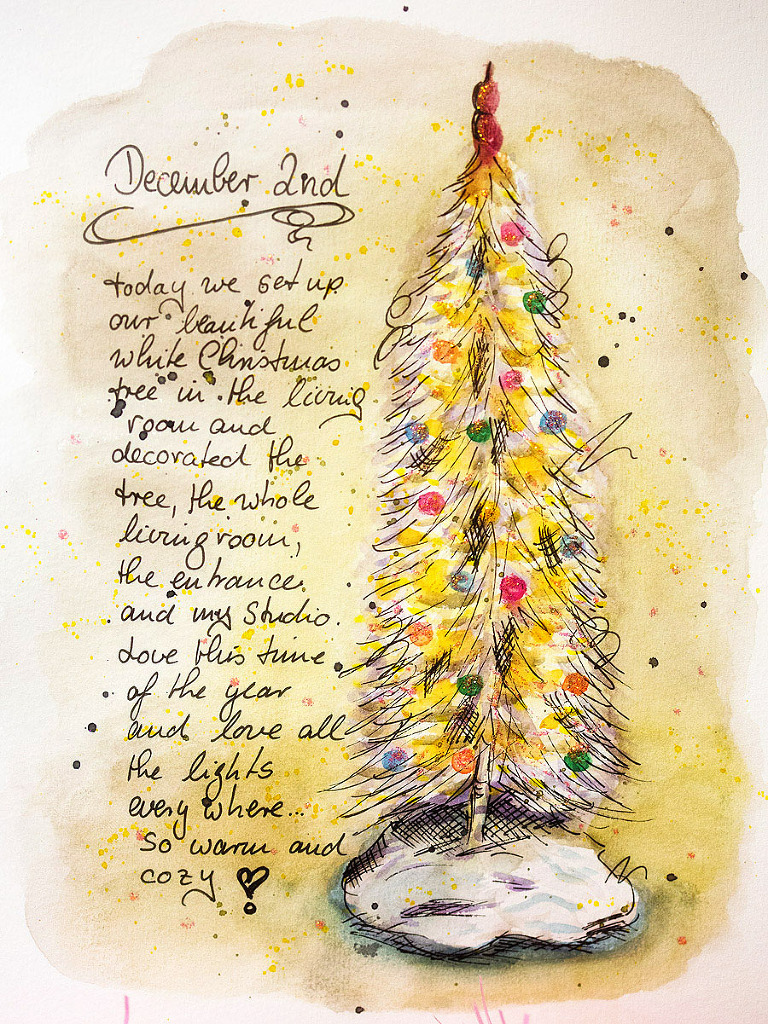 December 2nd
today we set up
our beautiful
white Christmas
tree in the living
room and
decorated the
tree, the whole
livingroom,
the entrance
and my Studio.
Love this time
of the year
and love all
the lights
every where...
So warm and
cozy